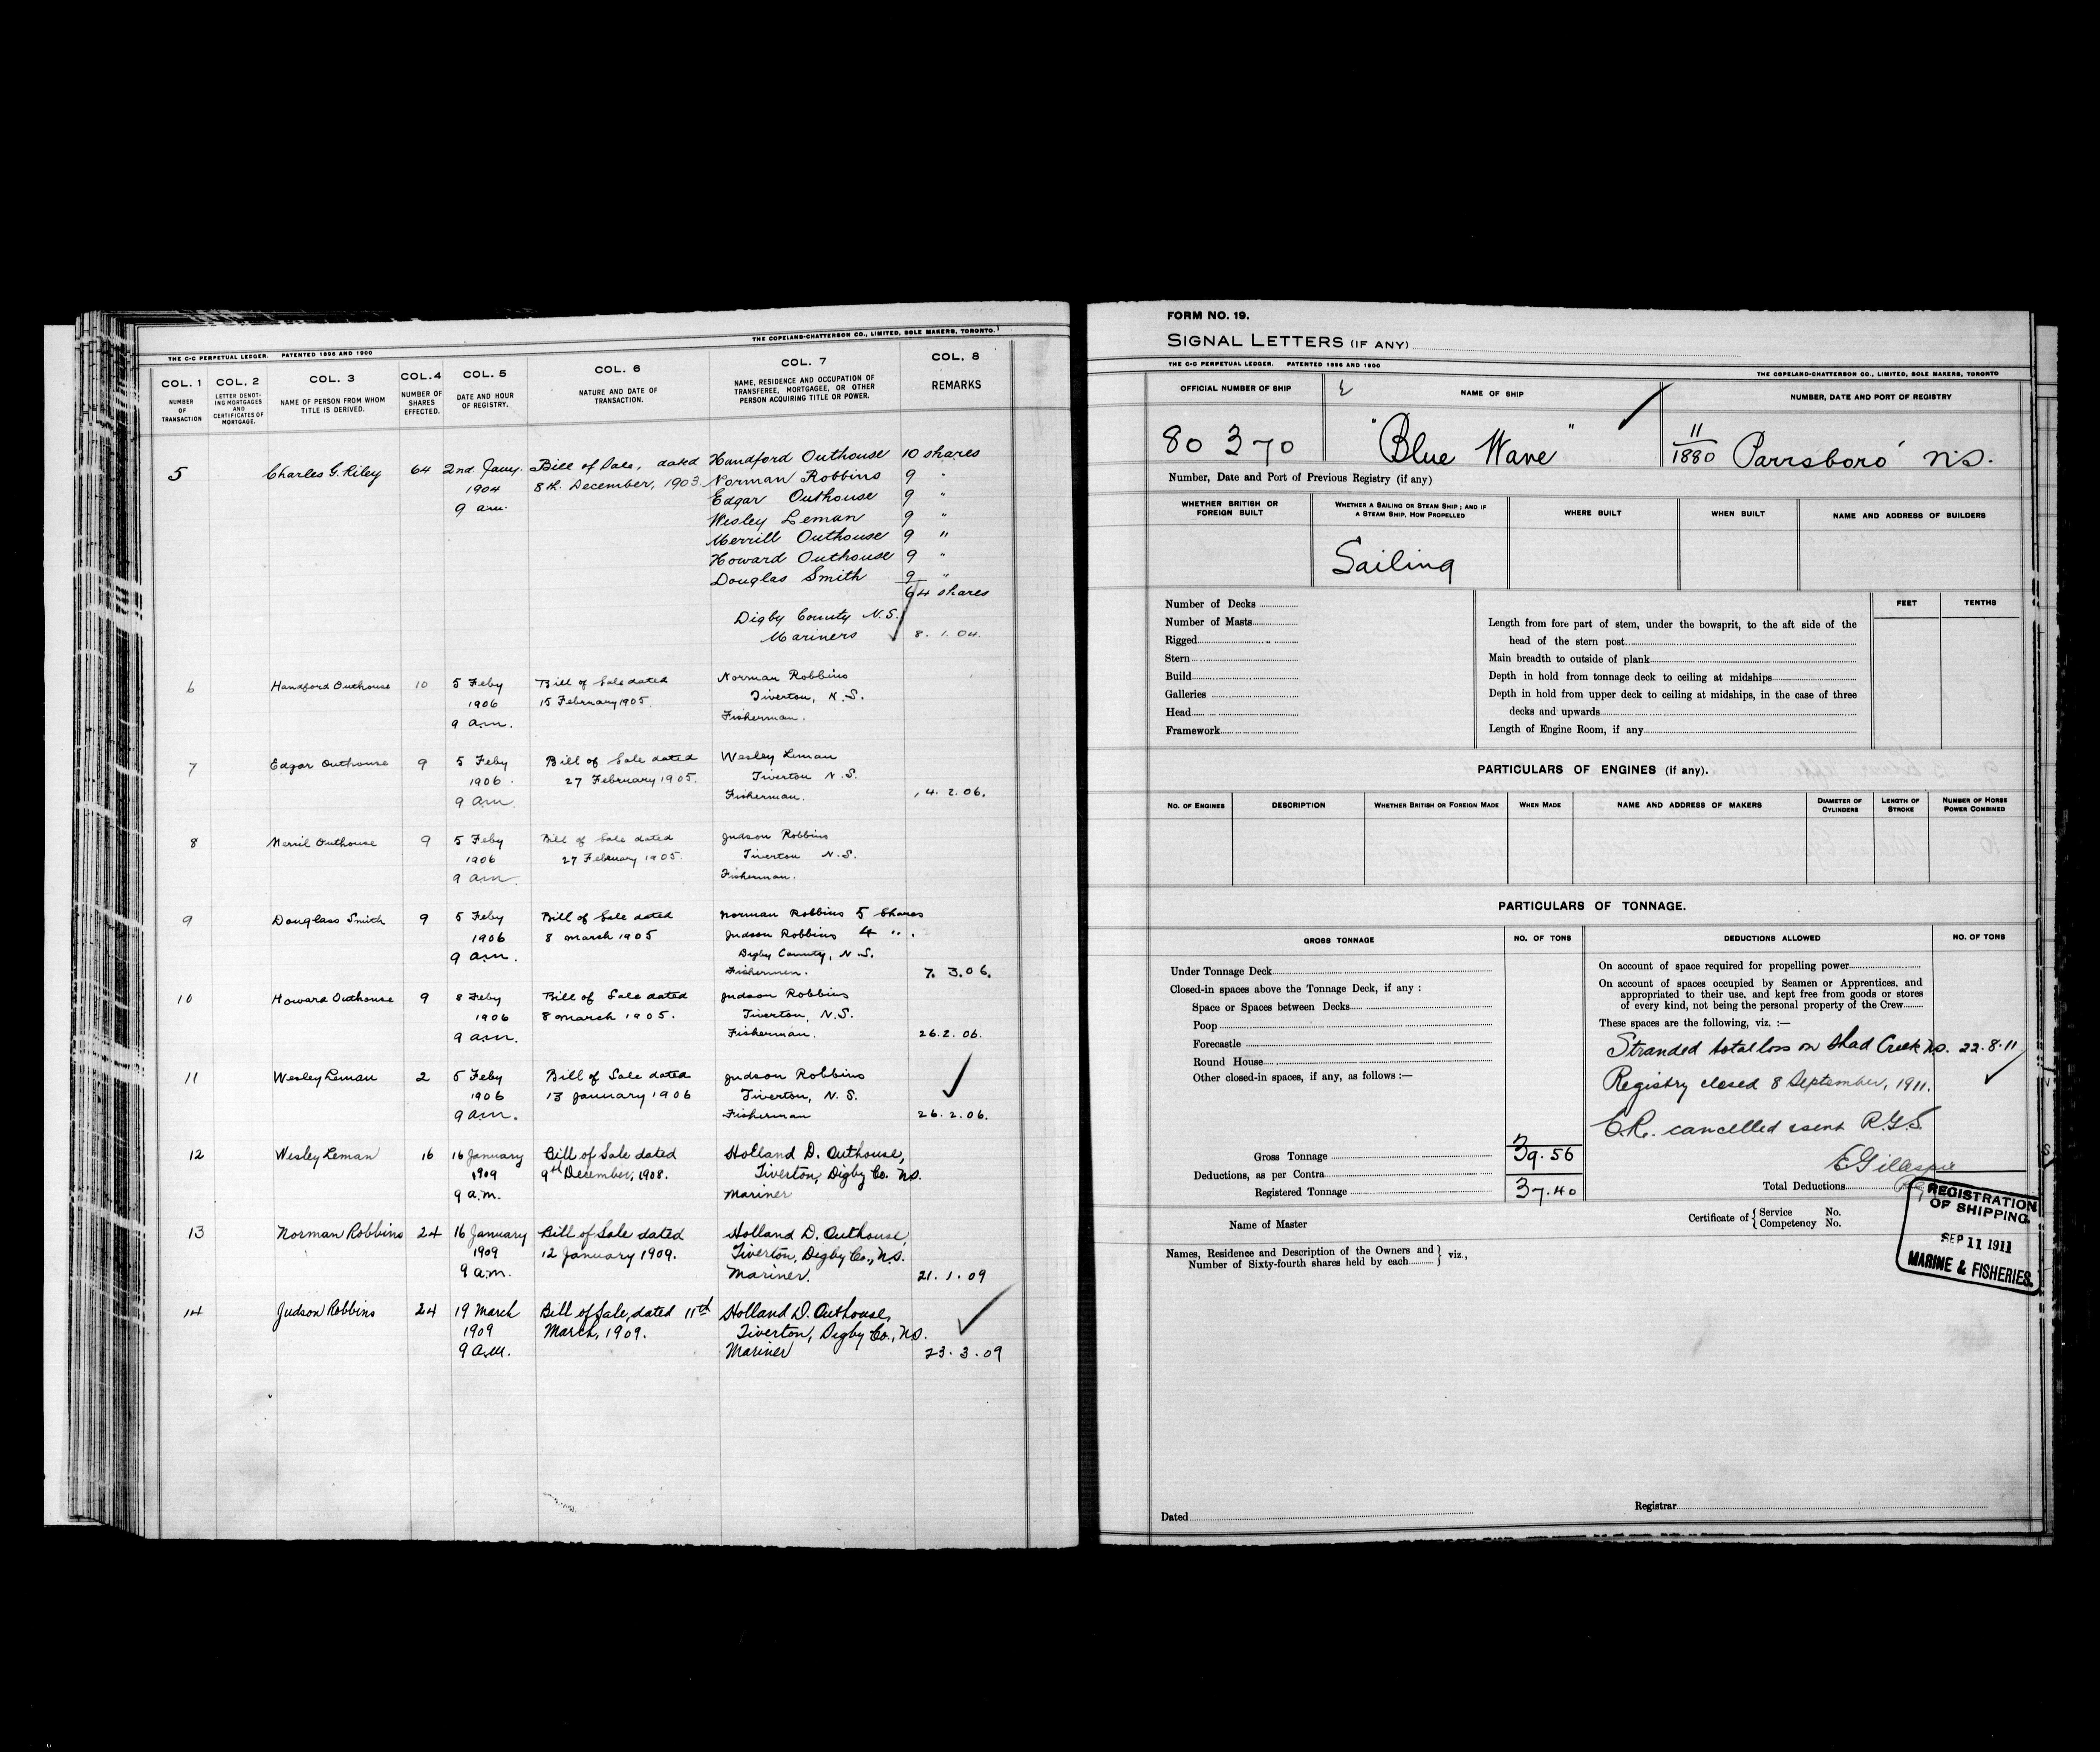 THE C-C PERPETUAL LEDGER. PATENTED 1896 AND 1900
THE COPELAND-CHATTERSON CO., LIMITED, SOLE MAKERS, TORONTO.
COL. 1 NUMBER OF TRANSACTION
COL. 2 LETTER DENOTING MORTGAGES AND CERTIFICATES OF MORTGAGE.
COL. 3 NAME OF PERSON FROM WHOM TITLE IS DERIVED.
COL. 4 NUMBER OF SHARES EFFECTED.
COL. 5 DATE AND HOUR OF REGISTRY.
COL. 6 NATURE AND DATE OF TRANSACTION.
COL. 7 NAME, RESIDENCE AND OCCUPATION OF TRANSFEREE, MORTGAGEE, OR OTHER PERSON ACQUIRING TITLE OR POWER.
COL. 8 REMARKS
5 Charles G. Riley 64 2nd Jany. Bill of Sale, dated Handford Outhouse 10 shares
1904 8th. December, 1903. Norman Robbins 9 "
9 am. Edgar Outhouse 9 "
Wesley Leman 9 "
Merrill Outhouse 9 "
Howard Outhouse 9 "
Douglas Smith 9 "
64 shares
Digby County N.S.
Mariners 8. 1. 04.
6 Handford Outhouse 10 5 Feby Bill of Sale dated Norman Robbins
1906 15 February 1905. Tiverton, N.S.
9 a.m. Fisherman.
7 Edgar Outhouse 9 5 Feby Bill of Sale dated Wesley Leman
1906. 27 February 1905. Tiverton N.S.
9 am. Fisherman. 14. 2. 06.
8 Merril Outhouse 9 5 Feby Bill of Sale dated Judson Robbins
1906 27 February 1905. Tiverton N.S.
9 am. Fisherman.
9 Douglass Smith 9 5 Feby Bill of Sale dated Norman Robbins 5 Shares
1906 8 March 1905 Judson Robbins 4 "
9 a.m. Digby County, N.S.
Fishermen. 7. 3. 06.
10 Howard Outhouse 9 8 Feby Bill of Sale dated Judson Robbins
1906 8 March 1905. Tiverton, N.S.
9 am. Fisherman. 26.2.06.
11 Wesley Leman 2 5 Feby Bill of Sale dated Judson Robbins
1906 13 January 1906 Tiverton, N.S.
9 am. Fisherman 26.2.06.
12 Wesley Leman 16 16 January Bill of Sale dated Holland D. Outhouse,
1909 9th December, 1908. Tiverton, Digby Co. N.S.
9 a.m. Mariner
13 Norman Robbins 24 16 January Bill of Sale dated Holland D. Outhouse,
1909 12 January 1909. Tiverton, Digby Co., N.S.
9 a.m. Mariner. 21. 1. 09
14 Judson Robbins 24 19 March Bill of Sale, dated 11th Holland D. Outhouse,
1909 March, 1909. Tiverton, Digby Co., N.S.
9 A.M. Mariner 23. 3. 09
FORM NO. 19.
SIGNAL LETTERS (IF ANY)
THE C-C PERPETUAL LEDGER. PATENTED 1896 AND 1900
THE COPELAND-CHATTERSON CO., LIMITED, SOLE MAKERS, TORONTO
OFFICIAL NUMBER OF SHIP NAME OF SHIP NUMBER, DATE AND PORT OF REGISTRY
80370 "Blue Wave" 11/1880 Parrsboro' N.S.
Number, Date and Port of Previous Registry (if any)
WHETHER BRITISH OR FOREIGN BUILT
WHETHER A SAILING OR STEAM SHIP; AND IF A STEAM SHIP, HOW PROPELLED
WHERE BUILT
WHEN BUILT
NAME AND ADDRESS OF BUILDERS
Sailing
Number of Decks
Number of Masts
Rigged
Stern
Build
Galleries
Head
Framework
FEET TENTHS
Length from fore part of stem, under the bowsprit, to the aft side of the
head of the stern post
Main breadth to outside of plank
Depth in hold from tonnage deck to ceiling at midships
Depth in hold from upper deck to ceiling at midships, in the case of three
decks and upwards
Length of Engine Room, if any
PARTICULARS OF ENGINES (if any).
NO. OF ENGINES DESCRIPTION WHETHER BRITISH OR FOREIGN MADE WHEN MADE NAME AND ADDRESS OF MAKERS DIAMETER OF CYLINDERS LENGTH OF STROKE NUMBER OF HORSE POWER COMBINED
PARTICULARS OF TONNAGE.
GROSS TONNAGE NO. OF TONS DEDUCTIONS ALLOWED NO. OF TONS
Under Tonnage Deck
Closed-in spaces above the Tonnage Deck, if any :
Space or Spaces between Decks
Poop
Forecastle
Round House
Other closed-in spaces, if any, as follows :—
Gross Tonnage 39.56
Deductions, as per Contra
Registered Tonnage 37.40
On account of space required for propelling power
On account of spaces occupied by Seamen or Apprentices, and
appropriated to their use, and kept free from goods or stores
of every kind, not being the personal property of the Crew
These spaces are the following, viz. :—
Stranded total loss on Shad Creek N.S. 22.8.11
Registry closed 8 September, 1911.
C.R. cancelled & sent R.G.S.
E Gillespie
Total Deductions
REGISTRATION
OF SHIPPING
SEP 11 1911
MARINE & FISHERIES.
Name of Master
Certificate of { Service No.
Competency No.
Names, Residence and Description of the Owners and
Number of Sixty-fourth shares held by each } viz.,
Dated
Registrar